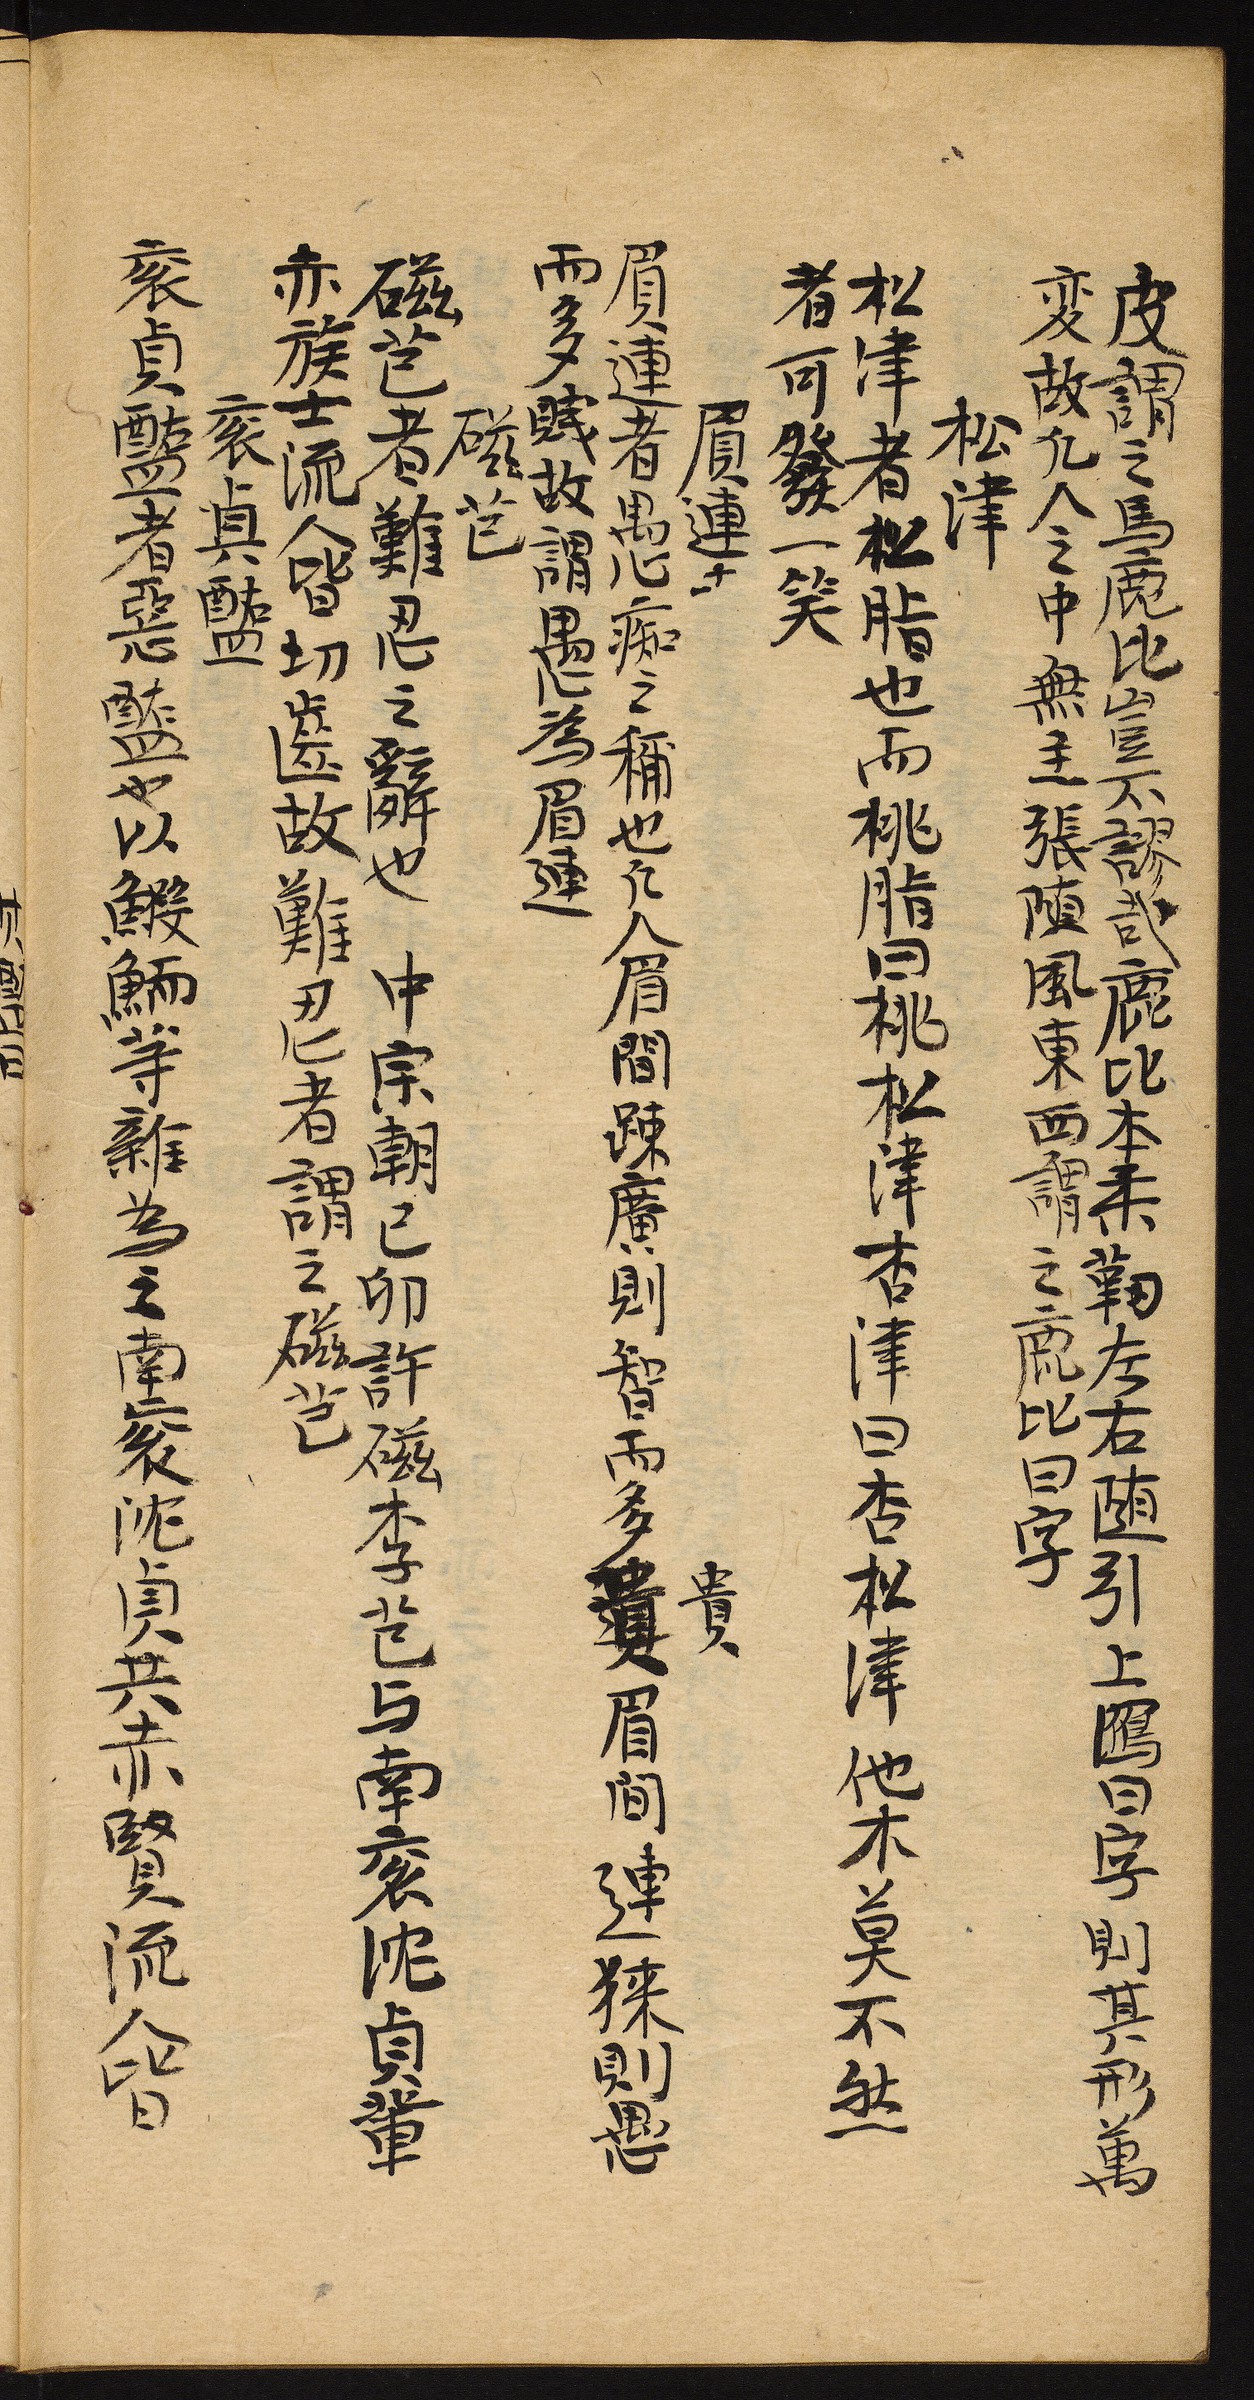 皮謂之馬鹿比豈不謬哉鹿比本柔韌左右随引上鴈曰字則其形萬
変故凡人之中無主張随風東西謂之鹿比曰字
松津
松津者松脂也而桃脂曰桃松津杏津曰杏松津他木莫不然
者可發一笑
眉連
眉連者愚痴之稱也凡人眉間踈廣則智而多貴眉间連狹則愚
而多賤故謂愚為眉連
磁芑
磁芑者難忍之辭也 中宗朝己卯許磁李芑与南袞沈貞輩
赤族士流人皆切齒故難忍者謂之磁芑
袞貞醢
袞貞醢者惡醢也以鰕鮞等雜為之南袞沈貞共赤賢流人皆